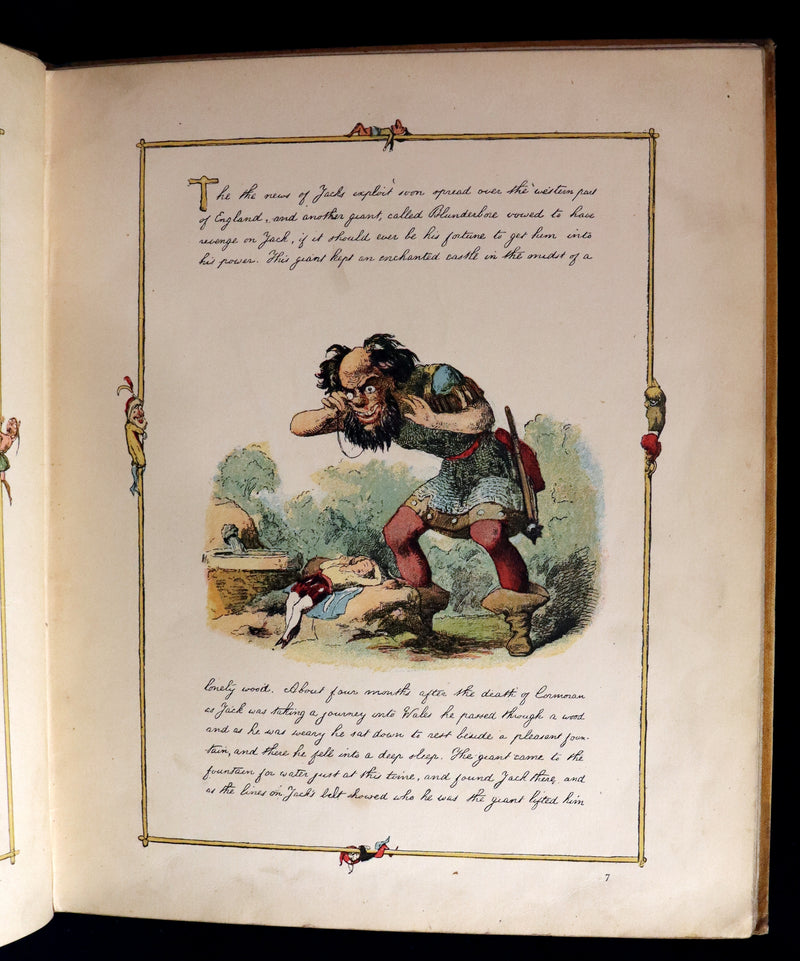 The the news of Jacks exploit soon spread over the western part
of England, and another giant, called Blunderbore vowed to have
revenge on Jack, if it should ever be his fortune to get him into
his power. This giant kept an enchanted castle in the midst of a
lonely wood. About four months after the death of Cormoran
as Jack was taking a journey into Wales he passed through a wood
and as he was weary he sat down to rest beside a pleasant foun-
tain, and there he fell into a deep sleep. The giant came to the
fountain for water just at this time, and found Jack there, and
as the lines on Jack's belt showed who he was the giant lifted him
7